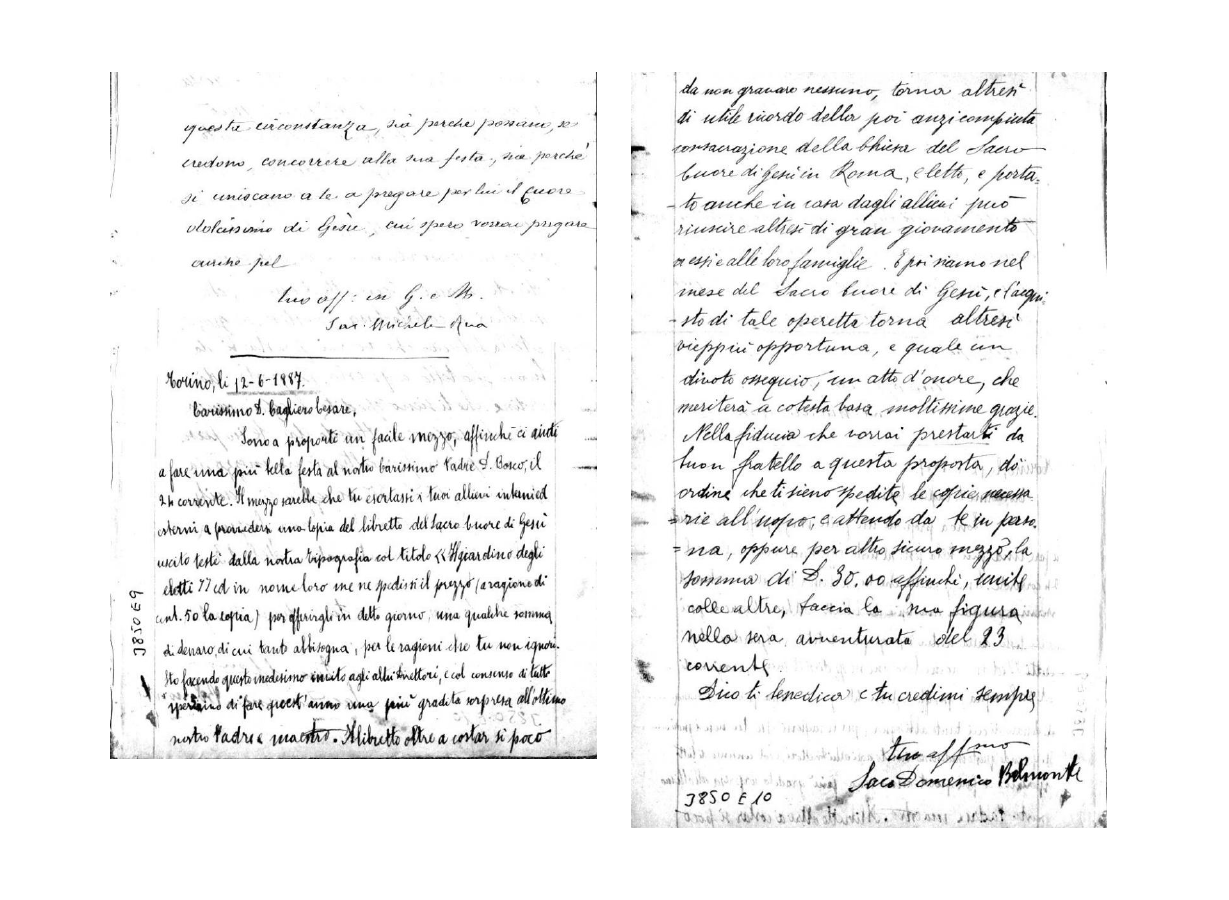 questa circostanza, sia perchè possano, se
credono, concorrere alla sua festa, sia perchè
si uniscano a te a pregare per lui il Cuore
dolcissimo di Gesù, cui spero vorrai pregare
anche pel
tuo aff: in G. e M.
Sac. Michele Rua
Torino, li 12-6-1887.
Carissimo D. Cagliero Cesare,
Sono a proporti un facile mezzo, affinchè ci aiuti
a fare una più bella festa al nostro Carissimo Padre D. Bosco, il
24 corrente. Il mezzo sarebbe che tu esortassi i tuoi allievi interni ed
esterni a provvedersi una copia del libretto del Sacro Cuore di Gesù
uscito testè dalla nostra tipografia col titolo « Il giardino degli
eletti " ed in nome loro me ne spedissi il prezzo (a ragione di
cent. 50 la copia) per offrirgli in detto giorno una qualche somma
di denaro, di cui tanto abbisogna, per le ragioni che tu non ignori.
Sto facendo questo medesimo invito agli altri Direttori, e col consenso di tutti
speriamo di fare quest'anno una più gradita sorpresa all'ottimo
nostro Padre e maestro. Il libretto oltre a costar sì poco
3850 E9
da non gravare nessuno, torna altresì
di utile ricordo della poi anzi compiuta
consacrazione della Chiesa del Sacro
Cuore di Gesù in Roma, e letto, e porta-
to anche in casa dagli allievi può
riuscire altresì di gran giovamento
a essi e alle loro famiglie. E poi siamo nel
mese del Sacro Cuore di Gesù, e l'acqui-
sto di tale operetta torna altresì
vieppiù opportuna, e quale un
divoto ossequio, un atto d'onore, che
meriterà a cotesta Casa moltissime grazie.
Nella fiducia che vorrai prestarti da
buon fratello a questa proposta, dò
ordine che ti sieno spedite le copie necessa
=rie all'uopo, e attendo da te in perso-
=na, oppure per altro sicuro mezzo, la
somma di L. 30.00 affinchè, unite
colle altre, faccia la sua figura
nella sera avventurata del 23
corrente.
Dio ti benedica e tu credimi sempre
tuo affmo
Sac. Domenico Belmonte
3850 E 10